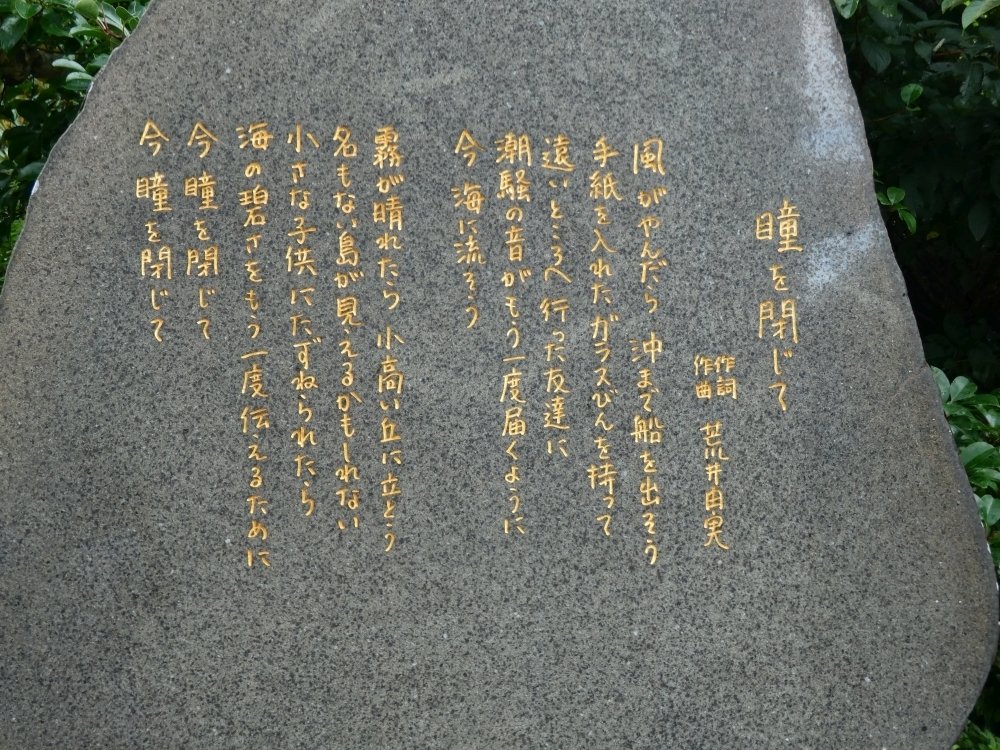 瞳を閉じて
作詞
作曲 荒井由実
風がやんだら 沖まで船を出そう
手紙を入れたガラスびんを持って
遠いところへ行った友達に
潮騒の音がもう一度届くように
今 海に流そう
霧が晴れたら 小高い丘に立とう
名もない島が見えるかもしれない
小さな子供にたずねられたら
海の碧さをもう一度伝えるために
今 瞳を閉じて
今 瞳を閉じて